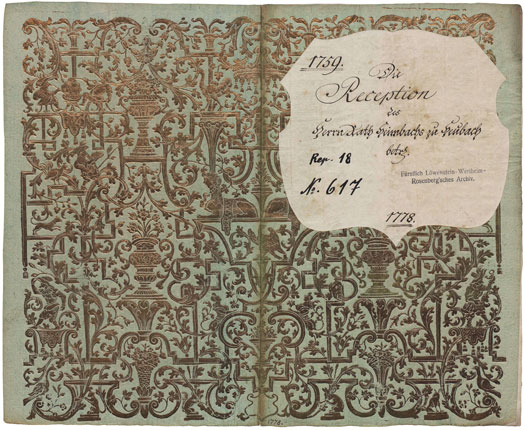 1759.
Die
Reception
des
Herrn Rath Heimbachs zu Heubach
betr.
Rep. 18
Fürstlich Löwenstein-Wertheim-
Rosenberg'sches Archiv.
No. 617
1778.
1778.